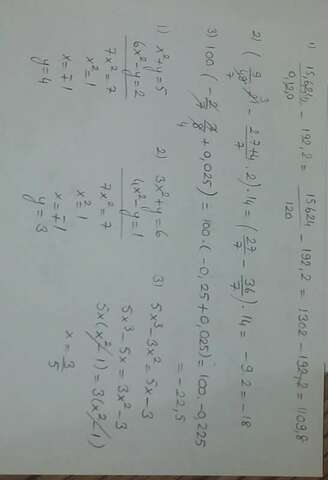 1) 15,624/0,120 - 192,2 = 15624/120 - 192,2 = 1302 - 192,2 = 1109,8
2) (9/7 · 3 - 2·7+4/7 · 2) · 14 = (27/7 - 36/7) · 14 = -9·2 = -18
3) 100 (-2/7 · 7/8 + 0,025) = 100 · (-0,25 + 0,025) = 100 · -0,225
4
= -22,5
1) x²+y=5
6x²-y=2
7x²=7
x²=1
x=∓1
y=4
2) 3x²+y=6
4x²-y=1
7x²=7
x²=1
x=∓1
y=3
3) 5x³-3x²=5x-3
5x³-5x=3x²-3
5x(x²-1)=3(x²-1)
x=3/5